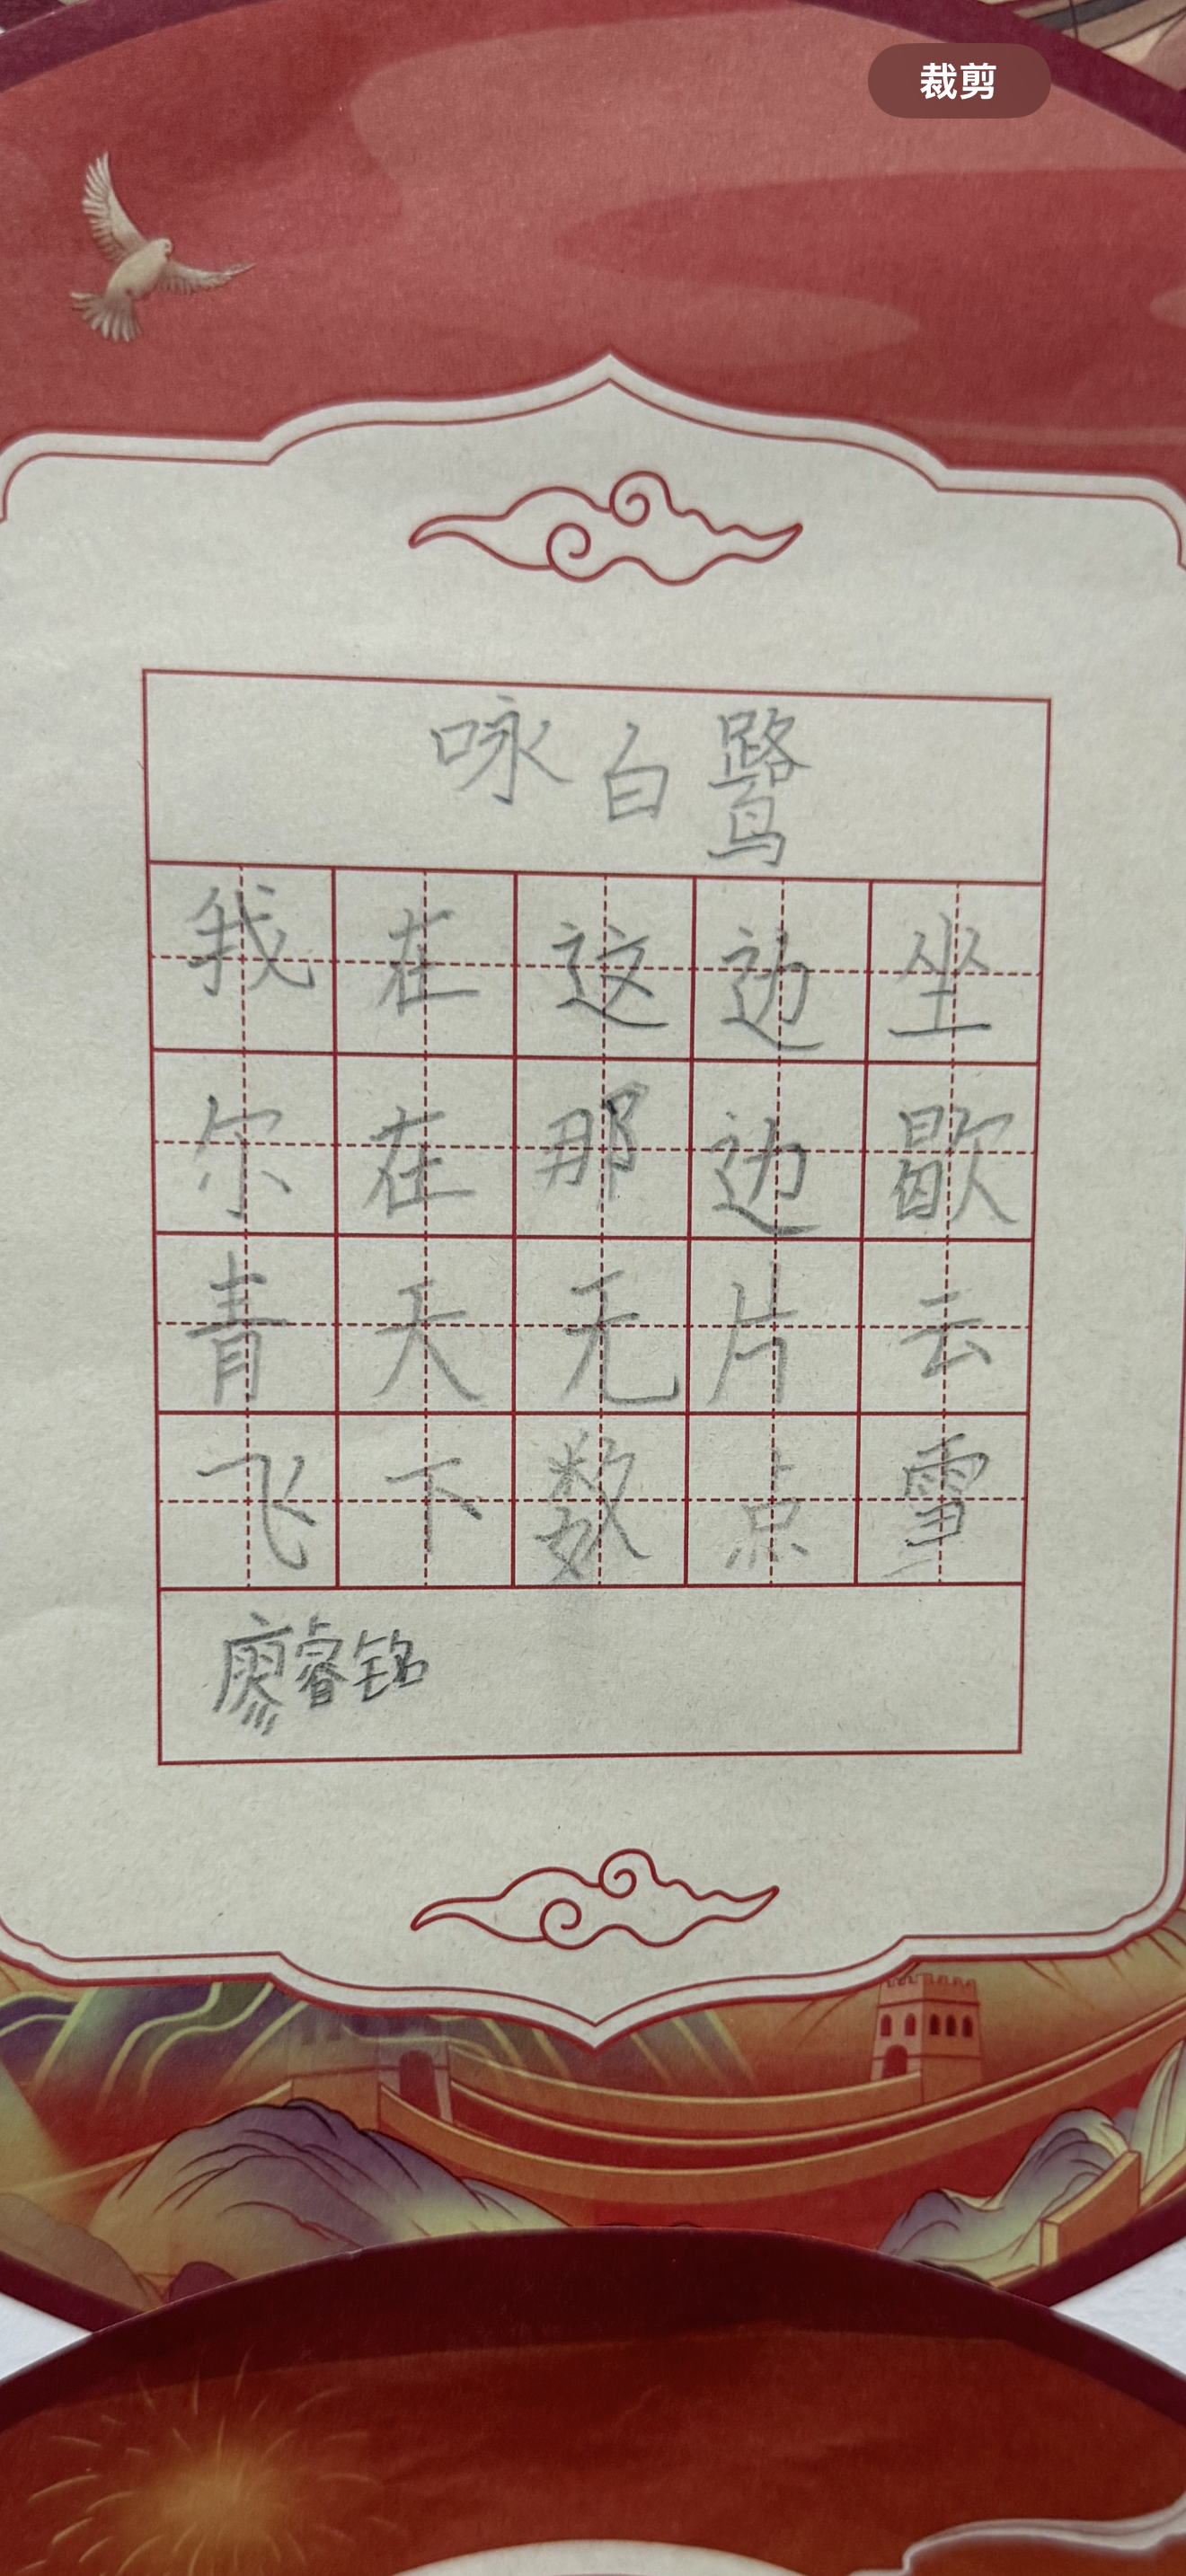 裁剪
咏白鹭
我在这边坐
尔在那边歇
青天无片云
飞下数点雪
廖睿铭